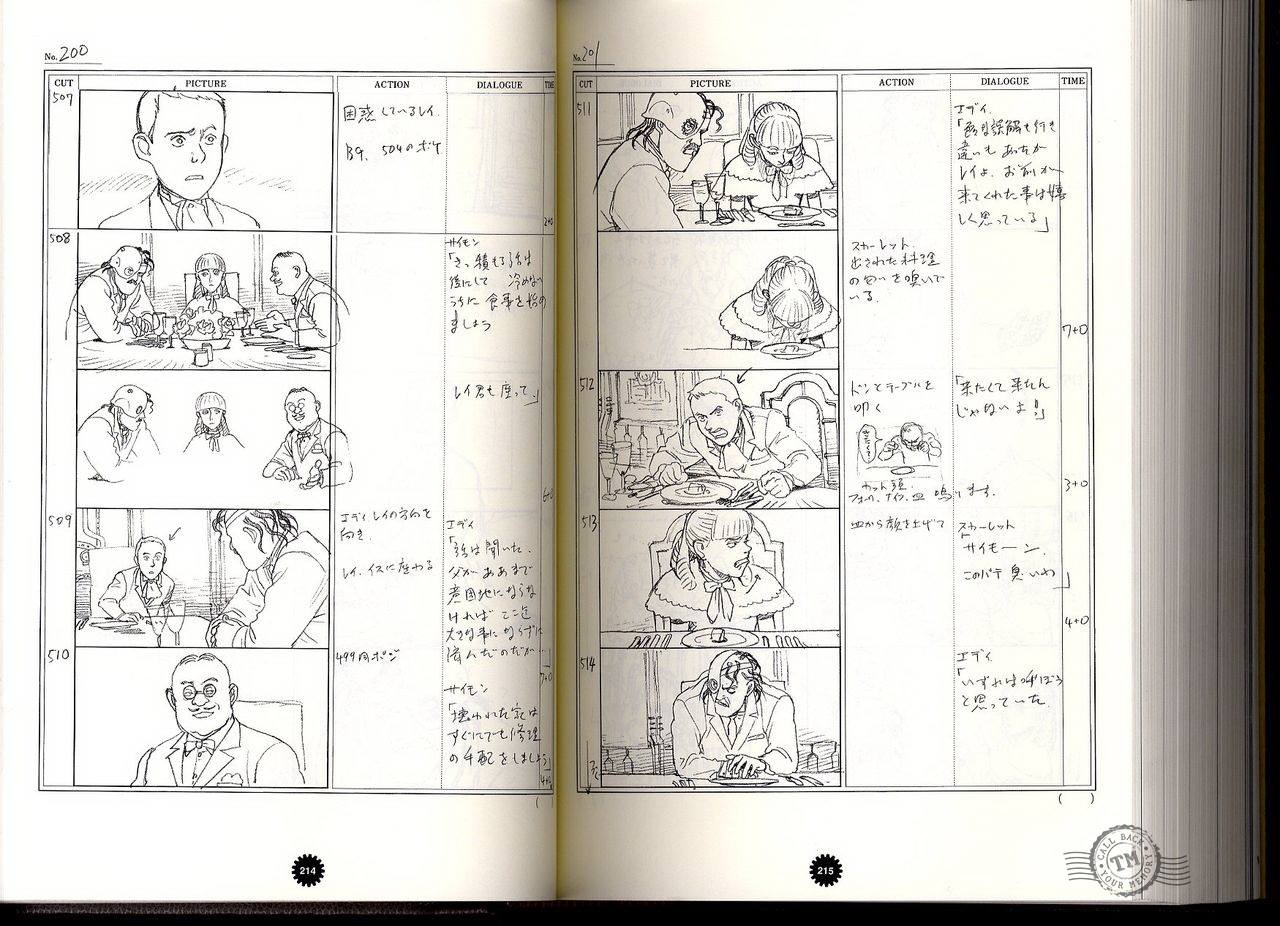 No. 200
CUT PICTURE ACTION DIALOGUE TIME
507
困惑しているレイ.
BG. 504のボケ
2+0
508
サイモン
「さっ積もる話は
後にして 冷めない
うちに 食事を始め
ましょう
レイ君も 座って」
6+0
509
エディ レイの方向を
向き.
レイ. イスに座わる
エディ
「話は聞いた.
父があぁまで
意固地にならな
ければ ここ迄
大きな事にならずに
済んだのだが…」
7+0
510
499同ポジ
サイモン
「壊われた家は
すぐにでも修理
の手配をしましょう」
4+0
( )
214
No. 201
CUT PICTURE ACTION DIALOGUE TIME
511
エディ.
誤解も行き
違いも あったが
レイよ. お前が
来てくれた事は嬉
しく思っている」
スカーレット.
出された料理
の匂いを嗅いで
いる.
7+0
512
ドンとテーブルを
叩く
「来たくて 来たん
じゃないよ!」
カット頭.
フォーク. ナイフ. 皿 鳴ります.
3+0
513
皿から顔を上げて
スカーレット
「サイモーン.
このパテ 臭いわ」
4+0
514
エディ
「いずれは呼ぼう
と思っていた.
( )
215
CALL BACK
TM
YOUR MEMORY